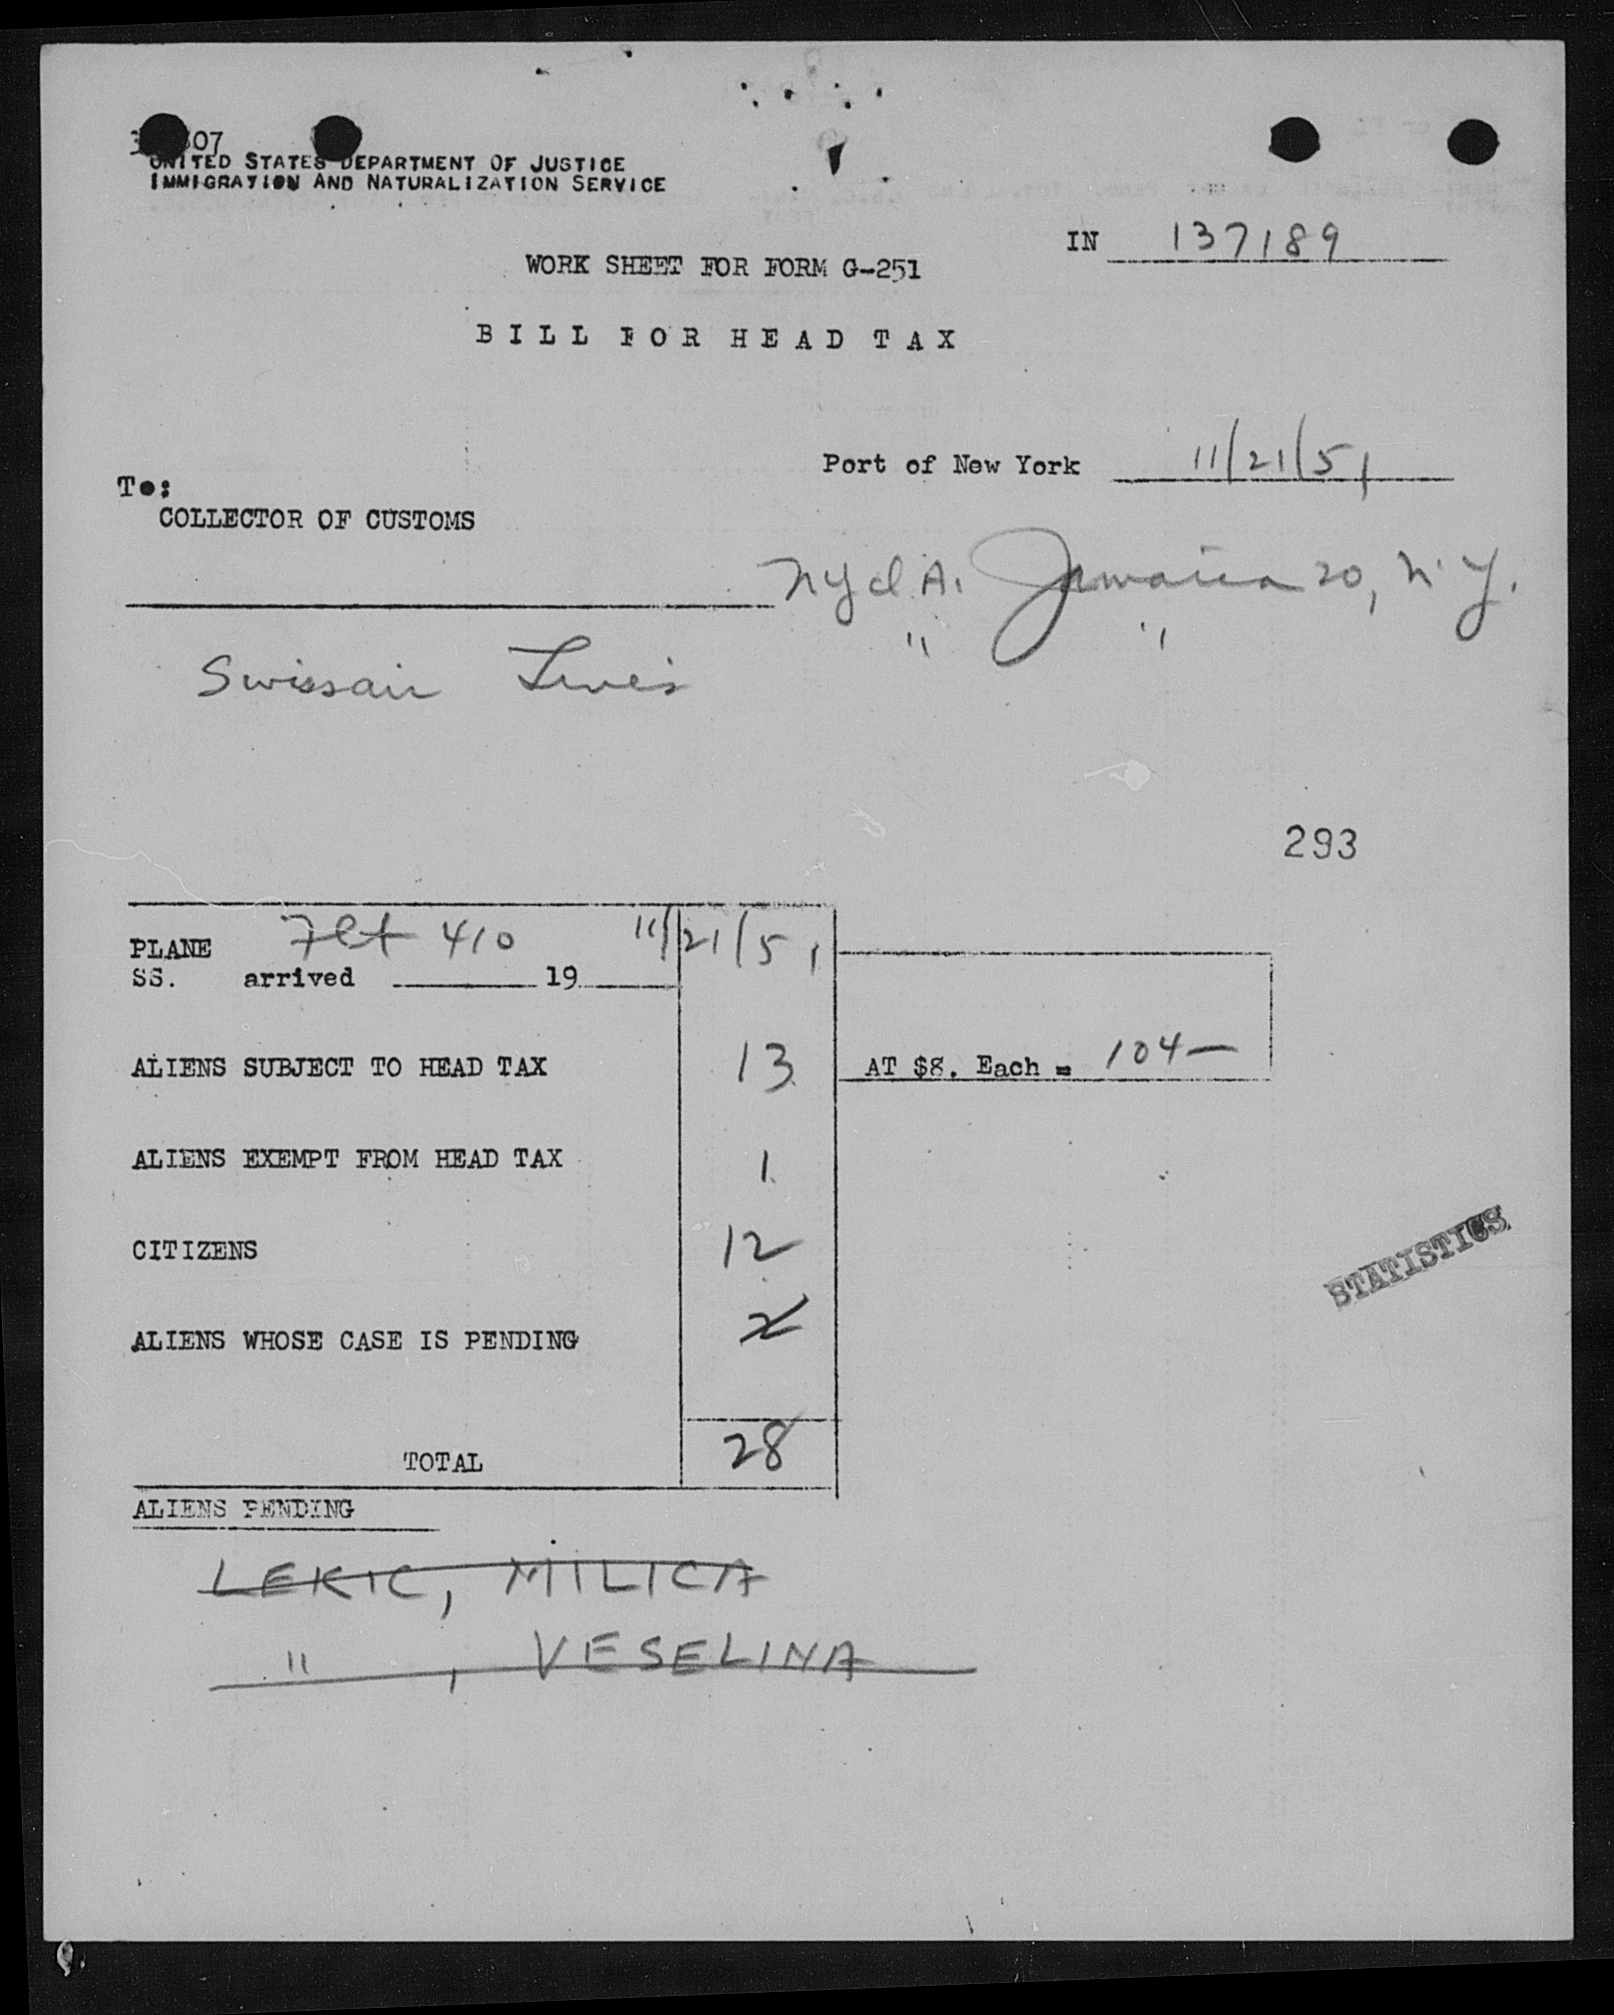 07
UNITED STATES DEPARTMENT OF JUSTICE
IMMIGRATION AND NATURALIZATION SERVICE
IN 137189
WORK SHEET FOR FORM G-251
BILL FOR HEAD TAX
Port of New York 11/21/51
To:
COLLECTOR OF CUSTOMS
Jamaica 20, N.Y.
" "
Swissair Lines
293
PLANE Flt 410 11/21/51
SS. arrived 19
ALIENS SUBJECT TO HEAD TAX 13 AT $8. Each = 104—
ALIENS EXEMPT FROM HEAD TAX 1
CITIZENS 12
STATISTICS
ALIENS WHOSE CASE IS PENDING 2
TOTAL 28
ALIENS PENDING
LEKIC, MILICA
" , VESELINA